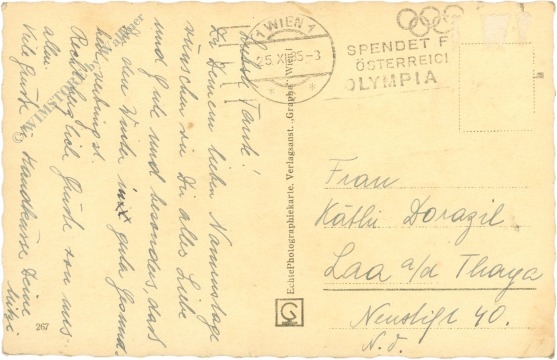 Liebste Tant!
Zu Deinem lieben Namenstage
wünschen wir Dir alles Liebe
und Gute und besonders, daß
Du den Winter in gute Gesund-
heit verbringst.
Recht herzliche Grüße von uns
allen.
Viele Grüße u. Handküsse Deine
Mitzi
267
1 WIEN 1
25. XI. 35-3
SPENDET F
ÖSTERREICH
OLYMPIA
Echte Photographiekarte. Verlagsanst. „Grapha" Wien I
G
Frau
Käthi Dorazil
Laa a/d Thaya
Neustift 40.
N. Ö.